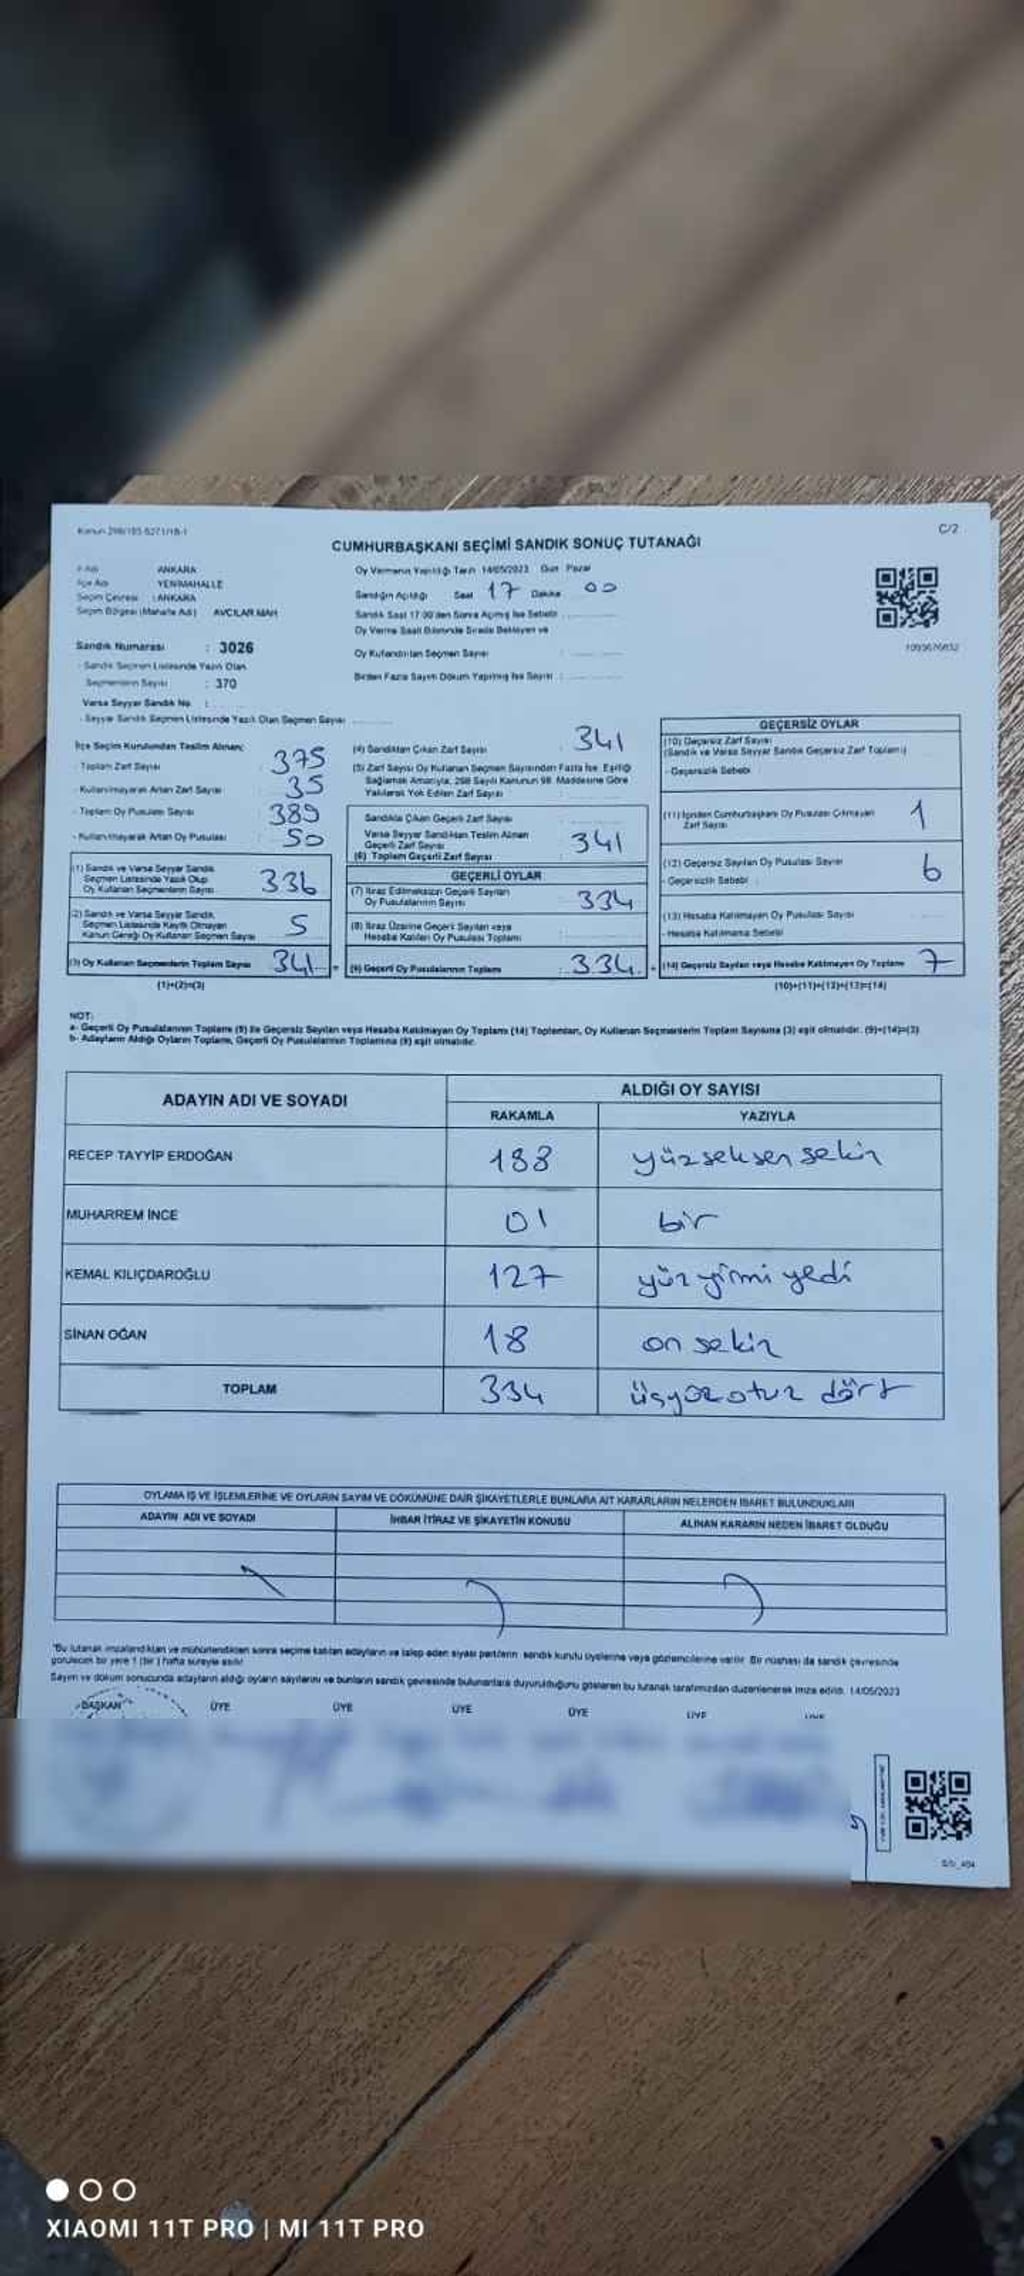 Kanun 298/105-6271/18-1
C/2
CUMHURBAŞKANI SEÇİMİ SANDIK SONUÇ TUTANAĞI
İl Adı ANKARA
İlçe Adı YENİMAHALLE
Seçim Çevresi : ANKARA
Seçim Bölgesi (Mahalle Adı) AVCILAR MAH
Sandık Numarası : 3026
- Sandık Seçmen Listesinde Yazılı Olan
Seçmenlerin Sayısı : 370
Varsa Seyyar Sandık No :
- Seyyar Sandık Seçmen Listesinde Yazılı Olan Seçmen Sayısı
Oy Vermenin Yapıldığı Tarih 14/05/2023 Gün Pazar
Sandığın Açıldığı Saat 17 Dakika 00
Sandık Saat 17:00'den Sonra Açılmış İse Sebebi
Oy Verme Saati Bitiminde Sırada Bekleyen ve
Oy Kullandırılan Seçmen Sayısı :
Birden Fazla Sayım Döküm Yapılmış İse Sayısı :
İlçe Seçim Kurulundan Teslim Alınan;
- Toplam Zarf Sayısı : 375
- Kullanılmayarak Artan Zarf Sayısı : 35
- Toplam Oy Pusulası Sayısı : 389
- Kullanılmayarak Artan Oy Pusulası : 50
(1) Sandık ve Varsa Seyyar Sandık
Seçmen Listesinde Yazılı Olup
Oy Kullanan Seçmenlerin Sayısı 336
(2) Sandık ve Varsa Seyyar Sandık
Seçmen Listesinde Kayıtlı Olmayan
Kanun Gereği Oy Kullanan Seçmen Sayısı 5
(3) Oy Kullanan Seçmenlerin Toplam Sayısı 341
(1)+(2)=(3)
(4) Sandıktan Çıkan Zarf Sayısı : 341
(5) Zarf Sayısı Oy Kullanan Seçmen Sayısından Fazla İse, Eşitliği
Sağlamak Amacıyla, 298 Sayılı Kanunun 98. Maddesine Göre
Yakılarak Yok Edilen Zarf Sayısı
Sandıkta Çıkan Geçerli Zarf Sayısı
Varsa Seyyar Sandıktan Teslim Alınan
Geçerli Zarf Sayısı
(6) Toplam Geçerli Zarf Sayısı : 341
GEÇERLİ OYLAR
(7) İtiraz Edilmeksizin Geçerli Sayılan
Oy Pusulalarının Sayısı : 334
(8) İtiraz Üzerine Geçerli Sayılan veya
Hesaba Katılan Oy Pusulası Toplamı
(9) Geçerli Oy Pusulalarının Toplamı : 334
GEÇERSİZ OYLAR
(10) Geçersiz Zarf Sayısı
(Sandık ve Varsa Seyyar Sandık Geçersiz Zarf Toplamı)
- Geçersizlik Sebebi
(11) İçinden Cumhurbaşkanı Oy Pusulası Çıkmayan
Zarf Sayısı 1
(12) Geçersiz Sayılan Oy Pusulası Sayısı 6
- Geçersizlik Sebebi
(13) Hesaba Katılmayan Oy Pusulası Sayısı
- Hesaba Katılmama Sebebi
(14) Geçersiz Sayılan veya Hesaba Katılmayan Oy Toplamı 7
(10)+(11)+(12)+(13)=(14)
NOT:
a- Geçerli Oy Pusulalarının Toplamı (9) ile Geçersiz Sayılan veya Hesaba Katılmayan Oy Toplamı (14) Toplamları, Oy Kullanan Seçmenlerin Toplam Sayısına (3) eşit olmalıdır. (9)+(14)=(3)
b- Adayların Aldığı Oyların Toplamı, Geçerli Oy Pusulalarının Toplamına (9) eşit olmalıdır.
ADAYIN ADI VE SOYADI
ALDIĞI OY SAYISI
RAKAMLA YAZIYLA
RECEP TAYYİP ERDOĞAN 188 yüzseksensekiz
MUHARREM İNCE 01 bir
KEMAL KILIÇDAROĞLU 127 yüzyirmiyedi
SİNAN OĞAN 18 onsekiz
TOPLAM 334 üçyüzotuz dört
OYLAMA İŞ VE İŞLEMLERİNE VE OYLARIN SAYIM VE DÖKÜMÜNE DAİR ŞİKAYETLERLE BUNLARA AİT KARARLARIN NELERDEN İBARET BULUNDUKLARI
ADAYIN ADI VE SOYADI İHBAR İTİRAZ VE ŞİKAYETİN KONUSU ALINAN KARARIN NEDEN İBARET OLDUĞU
*Bu tutanak imzalandıktan ve mühürlendikten sonra seçime katılan adayların ve talep eden siyasi partilerin sandık kurulu üyelerine veya gözlemcilerine verilir. Bir nüshası da sandık çevresinde
görülecek bir yere 1 (bir) hafta süreyle asılır.
Sayım ve döküm sonucunda adayların aldığı oyların sayılarını ve bunların sandık çevresinde bulunanlara duyurulduğunu gösteren bu tutanak tarafımızdan düzenlenerek imza edildi. 14/05/2023
BAŞKAN ÜYE ÜYE ÜYE ÜYE ÜYE ÜYE
XIAOMI 11T PRO | MI 11T PRO